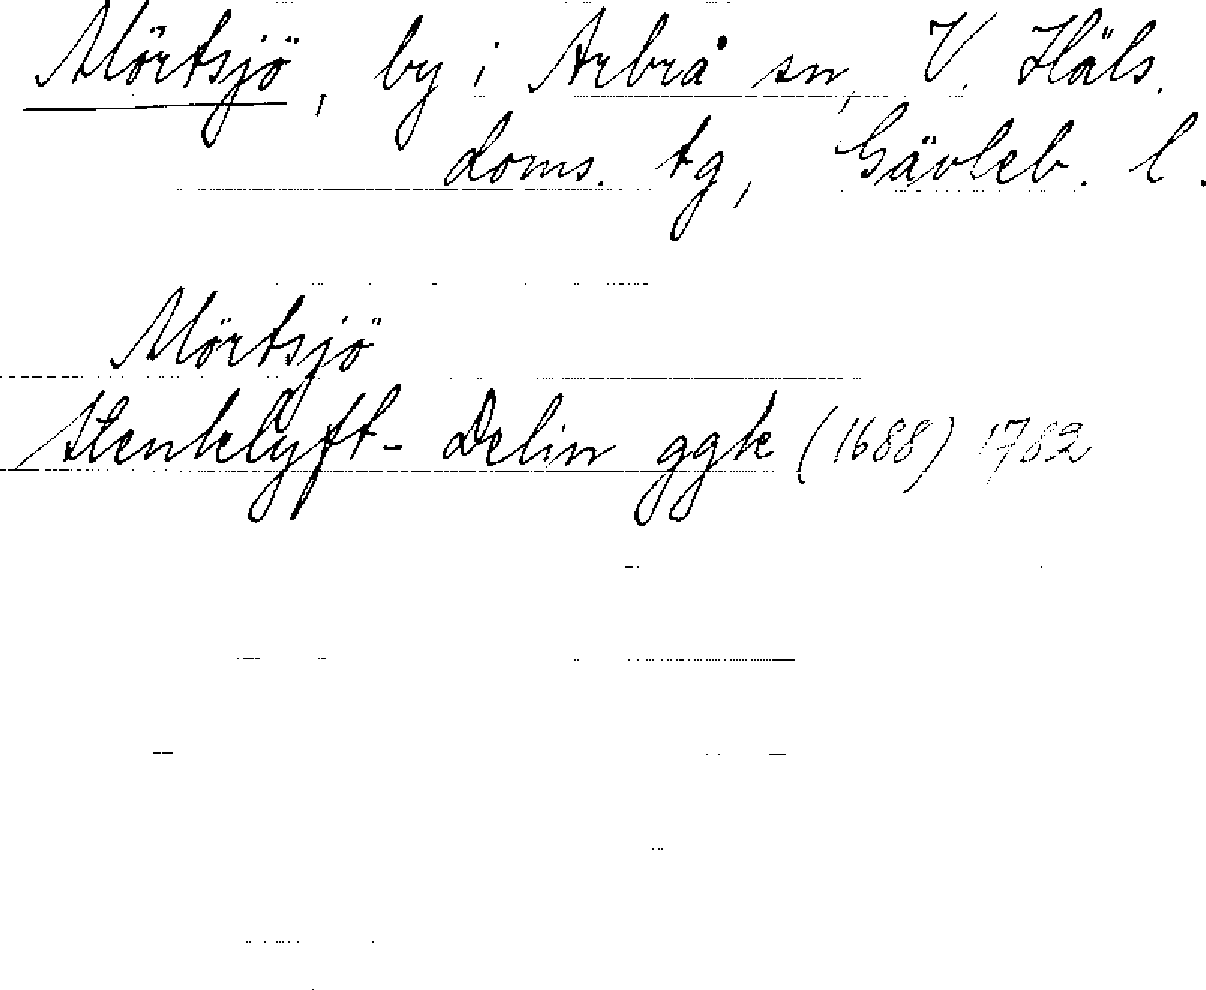 Mörtsjö, by i Arbrå sn, V. Häls.
doms. tg, Gävleb. l.
Mörtsjö
Stenklyft- Delin ggk (1688) 1782